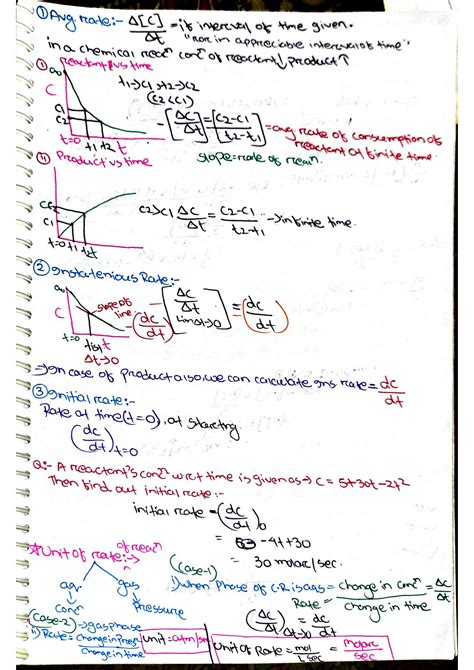 ① Avg rate:- Δ[C]/Δt = if interval of time given.
"not in appreciable interval of time"
in a chemical reacn concn of reactant↓ product↑
(i) reactant vs time
a₀
C
C1
C2
t=0 t1 t2 t
t1→C1, t2→C2
(C2<C1)
-[ΔC/Δt] = [C2-C1/t2-t1] = avg rate of consumption of
reactant at finite time.
slope = rate of reacn.
(ii) Product vs time
C2
C1
t=0 t1 t2 t
C2>C1 ΔC/Δt = C2-C1/t2-t1 → in finite time.
② Instatenious Rate:-
a₀
C
t=0
Δt→0
slope of
line
-(dc/dt) [ΔC/Δt] LimΔt→0 = (dc/dt)
⇒ In case of product also, we can calculate ins rate = dc/dt
③ Initial rate:-
Rate at time (t=0), at starting
(dc/dt)t=0
Q:- A reactant's concn w.r.t time is given as → C = 5+30t-2t²
Then find out initial rate:-
initial rate = (dc/dt)₀
= -4t+30
= 30 molar/sec.
*Unit of rate:- of reacn
aq. gas
conc Pressure
(case-1)
i) when Phase of C.R is gas = change in concn/change in time = ΔC/Δt
Rate =
(ΔC/Δt)Δt→0 = dc/dt
(case-2) → gas phase
ii) Rate = change in Press/change in time
Unit = atm/sec
Unit of Rate = mol/L sec = molar/sec